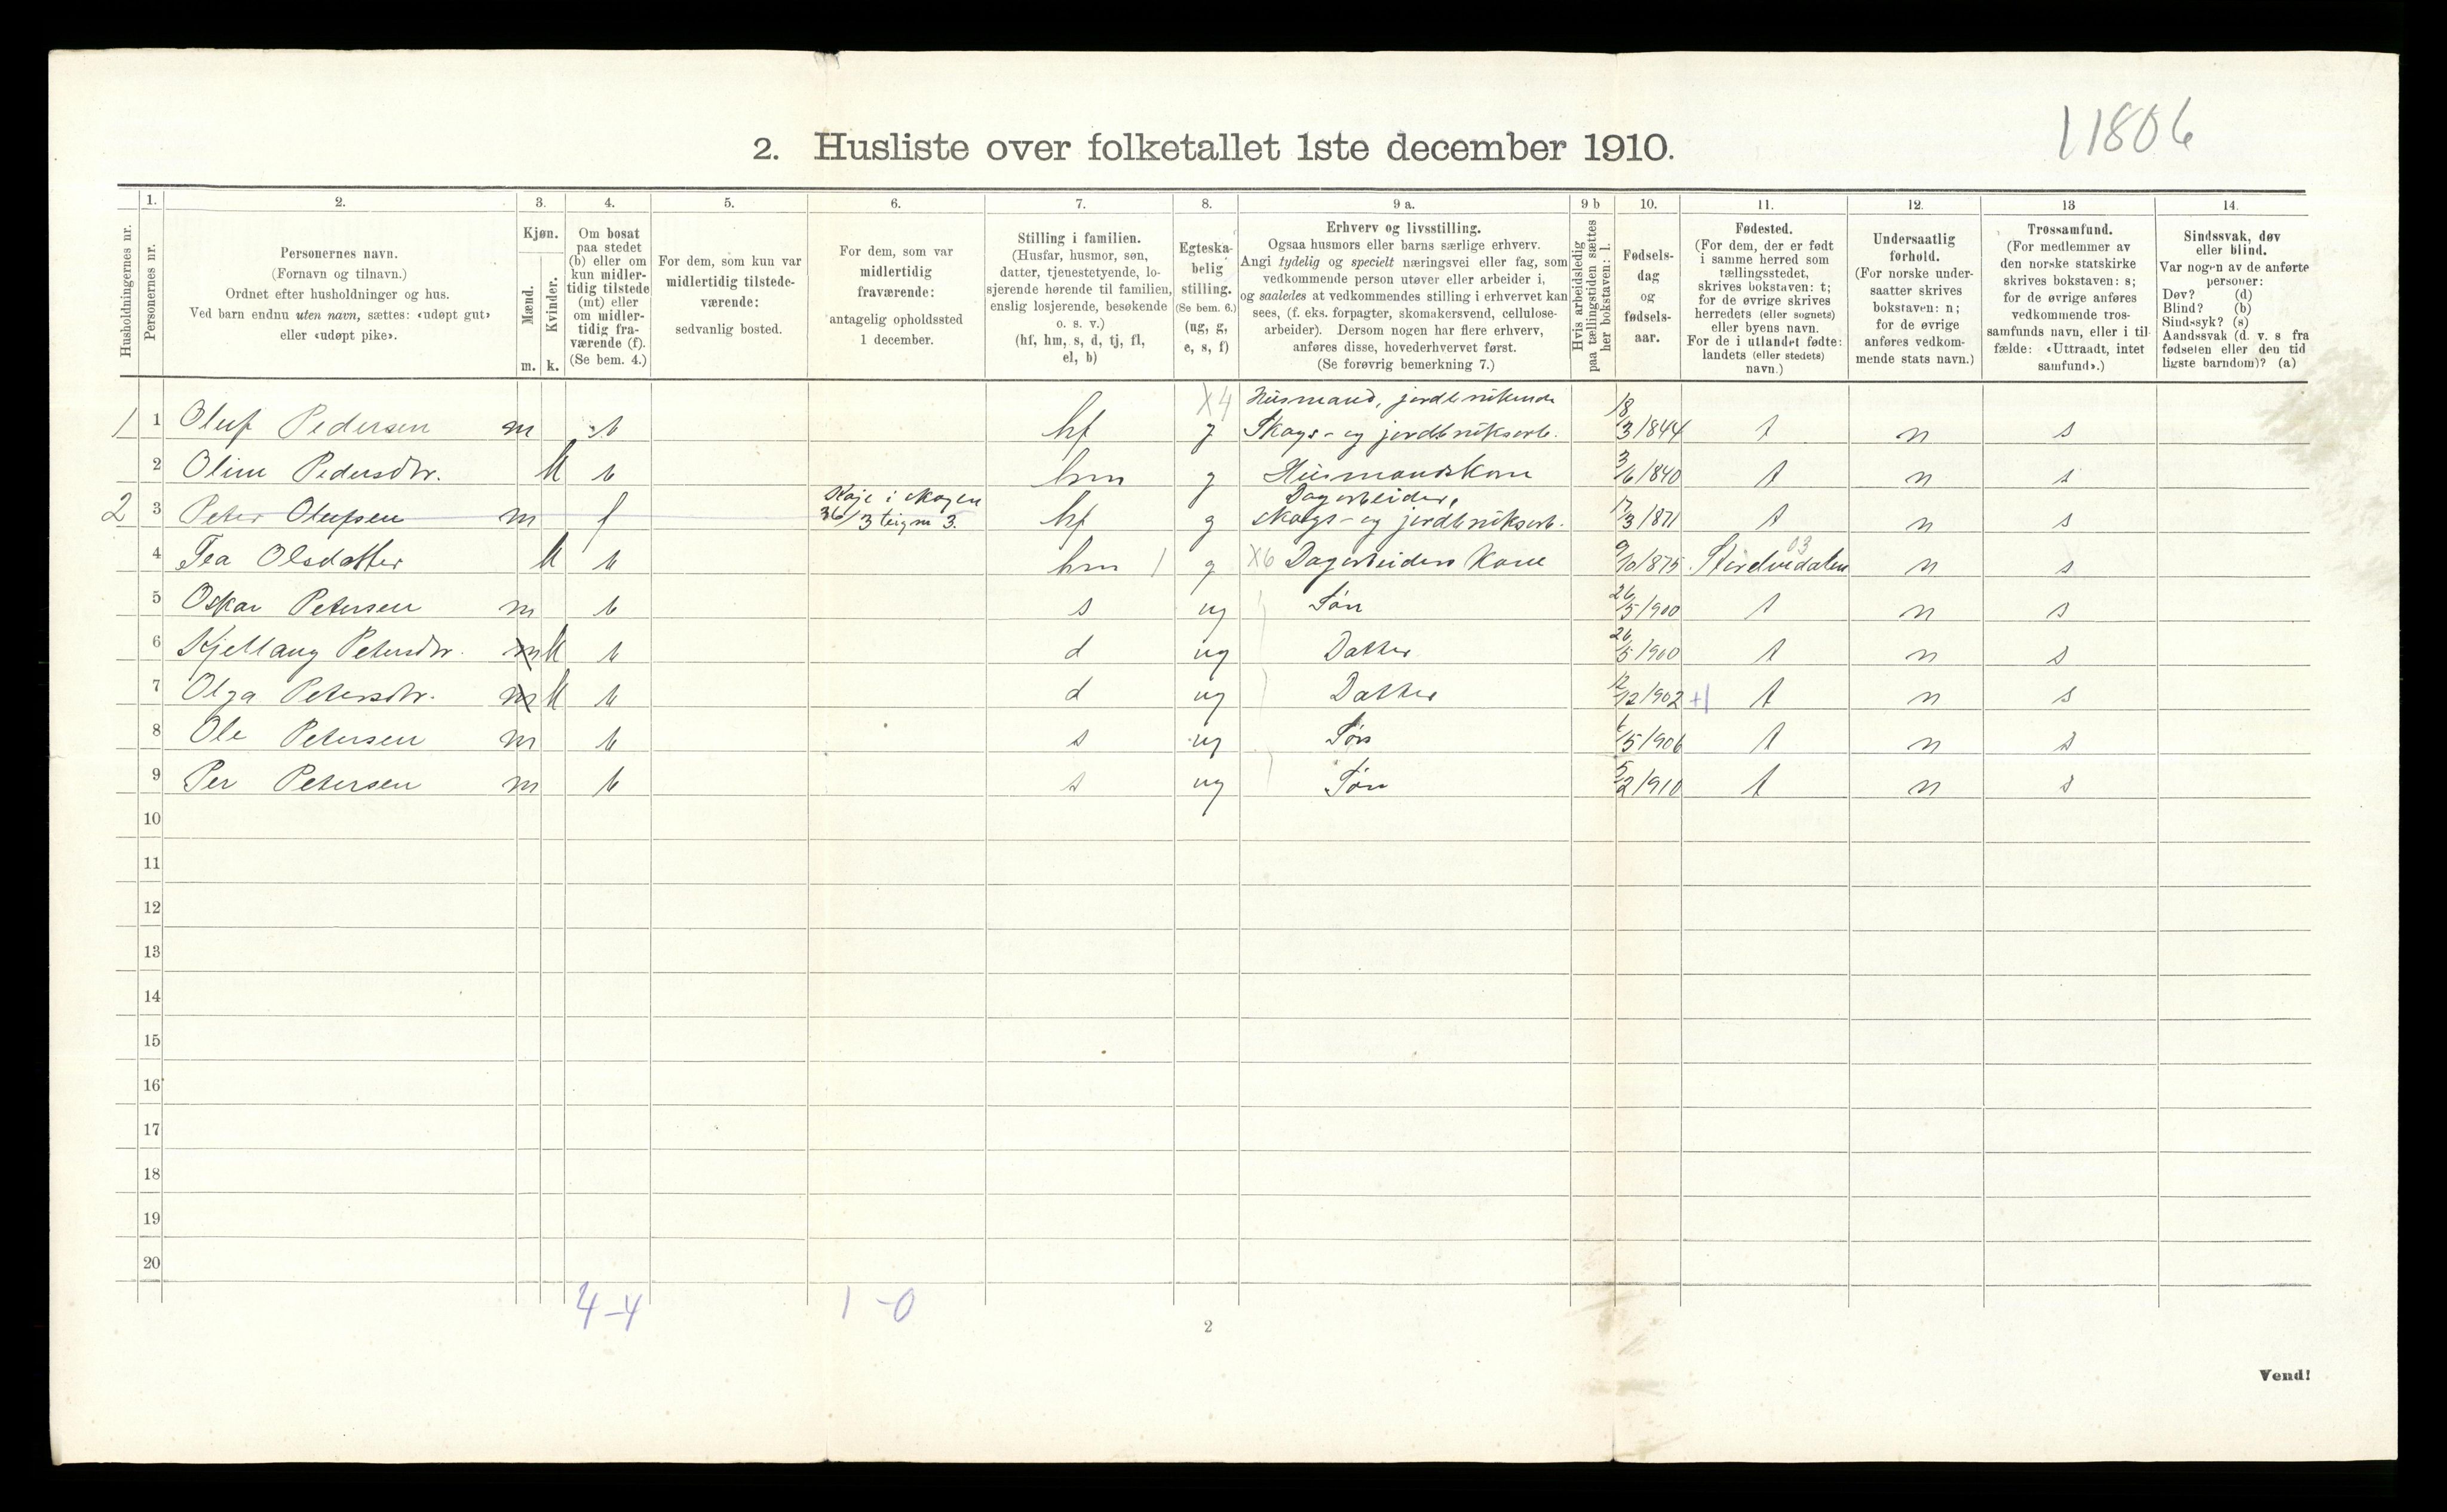 11806
2. Husliste over folketallet 1ste december 1910.
1. 2. 3. 4. 5. 6. 7. 8. 9 a. 9 b 10. 11. 12. 13 14.
Husholdningernes nr.
Personernes nr.
Personernes navn.
(Fornavn og tilnavn.)
Ordnet efter husholdninger og hus.
Ved barn endnu uten navn, sættes: «udøpt gut»
eller «udøpt pike».
Kjøn.
Mænd.
Kvinder.
m. k.
Om bosat
paa stedet
(b) eller om
kun midler-
tidig tilstede
(mt) eller
om midler-
tidig fra-
værende (f).
(Se bem. 4.)
For dem, som kun var
midlertidig tilstede-
værende:
sedvanlig bosted.
For dem, som var
midlertidig
fraværende:
antagelig opholdssted
1 december.
Stilling i familien.
(Husfar, husmor, søn,
datter, tjenestetyende, lo-
sjerende hørende til familien,
enslig losjerende, besøkende
o. s. v.)
(hf, hm, s, d, tj, fl,
el, b)
Egteska-
belig
stilling.
(Se bem. 6.)
(ug, g,
e, s, f)
Erhverv og livsstilling.
Ogsaa husmors eller barns særlige erhverv.
Angi tydelig og specielt næringsvei eller fag, som
vedkommende person utøver eller arbeider i,
og saaledes at vedkommendes stilling i erhvervet kan
sees, (f. eks. forpagter, skomakersvend, cellulose-
arbeider). Dersom nogen har flere erhverv,
anføres disse, hovederhvervet først.
(Se forøvrig bemerkning 7.)
Hvis arbeidsledig
paa tællingstiden sættes
her bokstaven: l.
Fødsels-
dag
og
fødsels-
aar.
Fødested.
(For dem, der er født
i samme herred som
tællingsstedet,
skrives bokstaven: t;
for de øvrige skrives
herredets (eller sognets)
eller byens navn.
For de i utlandet fødte:
landets (eller stedets)
navn.)
Undersaatlig
forhold.
(For norske under-
saatter skrives
bokstaven: n;
for de øvrige
anføres vedkom-
mende stats navn.)
Trossamfund.
(For medlemmer av
den norske statskirke
skrives bokstaven: s;
for de øvrige anføres
vedkommende tros-
samfunds navn, eller i til-
fælde: «Uttraadt, intet
samfund».)
Sindssvak, døv
eller blind.
Var nogen av de anførte
personer:
Døv? (d)
Blind? (b)
Sindssyk? (s)
Aandssvak (d. v. s fra
fødselen eller den tid
ligste barndom)? (a)
X4 Husmand, jordbrukende
1 1 Oluf Pedersen m b hf g Skogs- og jordbruksarb. 18/3 1844 t n s
2 Oline Pedersdtr. k b hm g Husmandskone 3/6 1840 t n s
Koje i skogen Dagarbeider,
2 3 Peter Olufsen m f 36/3 teig nr 3. hf g skogs- og jordbruksarb. 17/3 1871 t n s
4 Tea Olsdatter k b hm 1 g X6 Dagarbeiders Kone 9/10 1875 Storelvedalen 03 n s
5 Oskar Petersen m b s ug Søn 26/5 1900 t n s
6 Kjellaug Petersdtr. m k b d ug Datter 26/5 1900 t n s
7 Olga Petersdtr. m k b d ug Datter 12/12 1902 +1 t n s
8 Ole Petersen m b s ug Søn 6/5 1906 t n s
9 Per Petersen m b s ug Søn 5/2 1910 t n s
10
11
12
13
14
15
16
17
18
19
20
4-4 1-0
2
Vend!